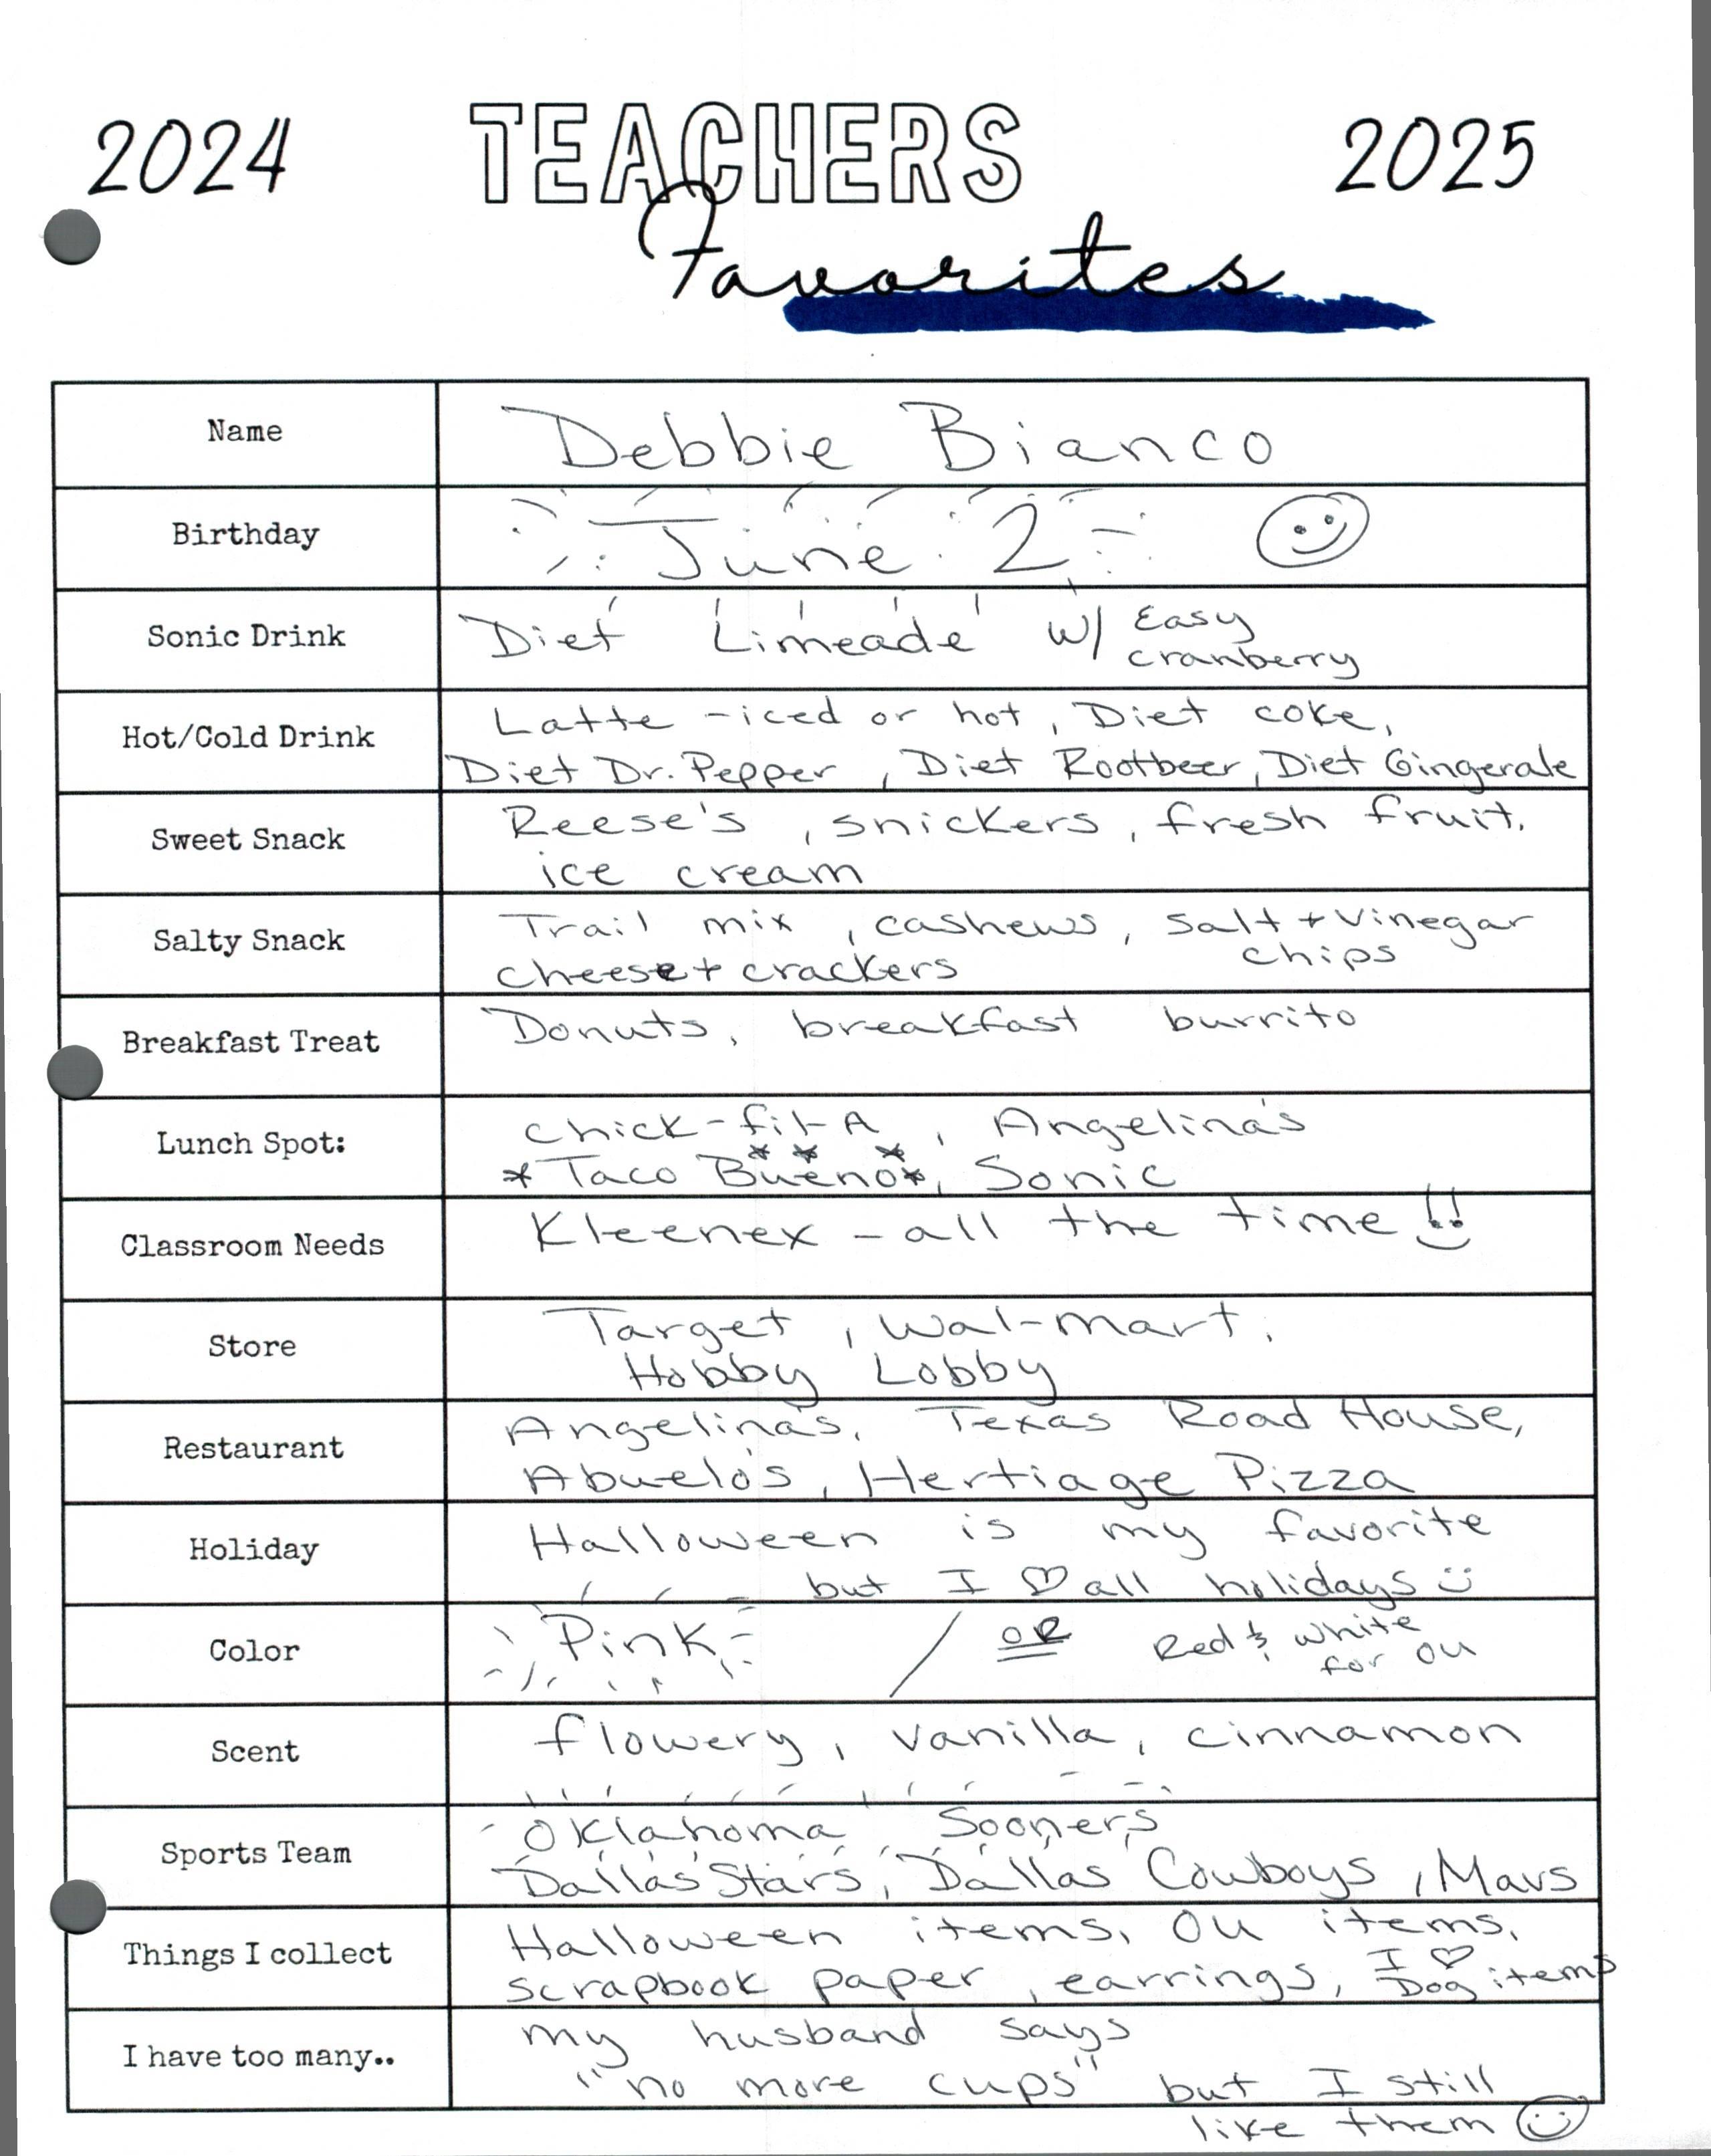 2024 TEACHERS 2025
Favorites
Name
Debbie Bianco
Birthday
June 2
Sonic Drink
Diet Limeade w/ Easy
cranberry
Hot/Cold Drink
Latte - iced or hot, Diet coke,
Diet Dr. Pepper, Diet Rootbeer, Diet Gingerale
Sweet Snack
Reese's, snickers, fresh fruit,
ice cream
Salty Snack
Trail mix, cashews, salt + vinegar
chips
cheese + crackers
Breakfast Treat
Donuts, breakfast burrito
Lunch Spot:
chick-fil-A, Angelina's
* Taco Bueno*, Sonic
Classroom Needs
Kleenex - all the time !!
Store
Target, Wal-mart,
Hobby Lobby
Restaurant
Angelina's, Texas Road House,
Abuelo's, Hertiage Pizza
Holiday
Halloween is my favorite
but I ♡ all holidays ☺
Color
Pink / OR Red & white
for OU
Scent
flowery, vanilla, cinnamon
Sports Team
Oklahoma Sooners
Dallas Stars, Dallas Cowboys, Mavs
Things I collect
Halloween items, OU items,
scrapbook paper, earrings, I ♡
Dog items
I have too many..
my husband says
"no more cups" but I still
like them ☺